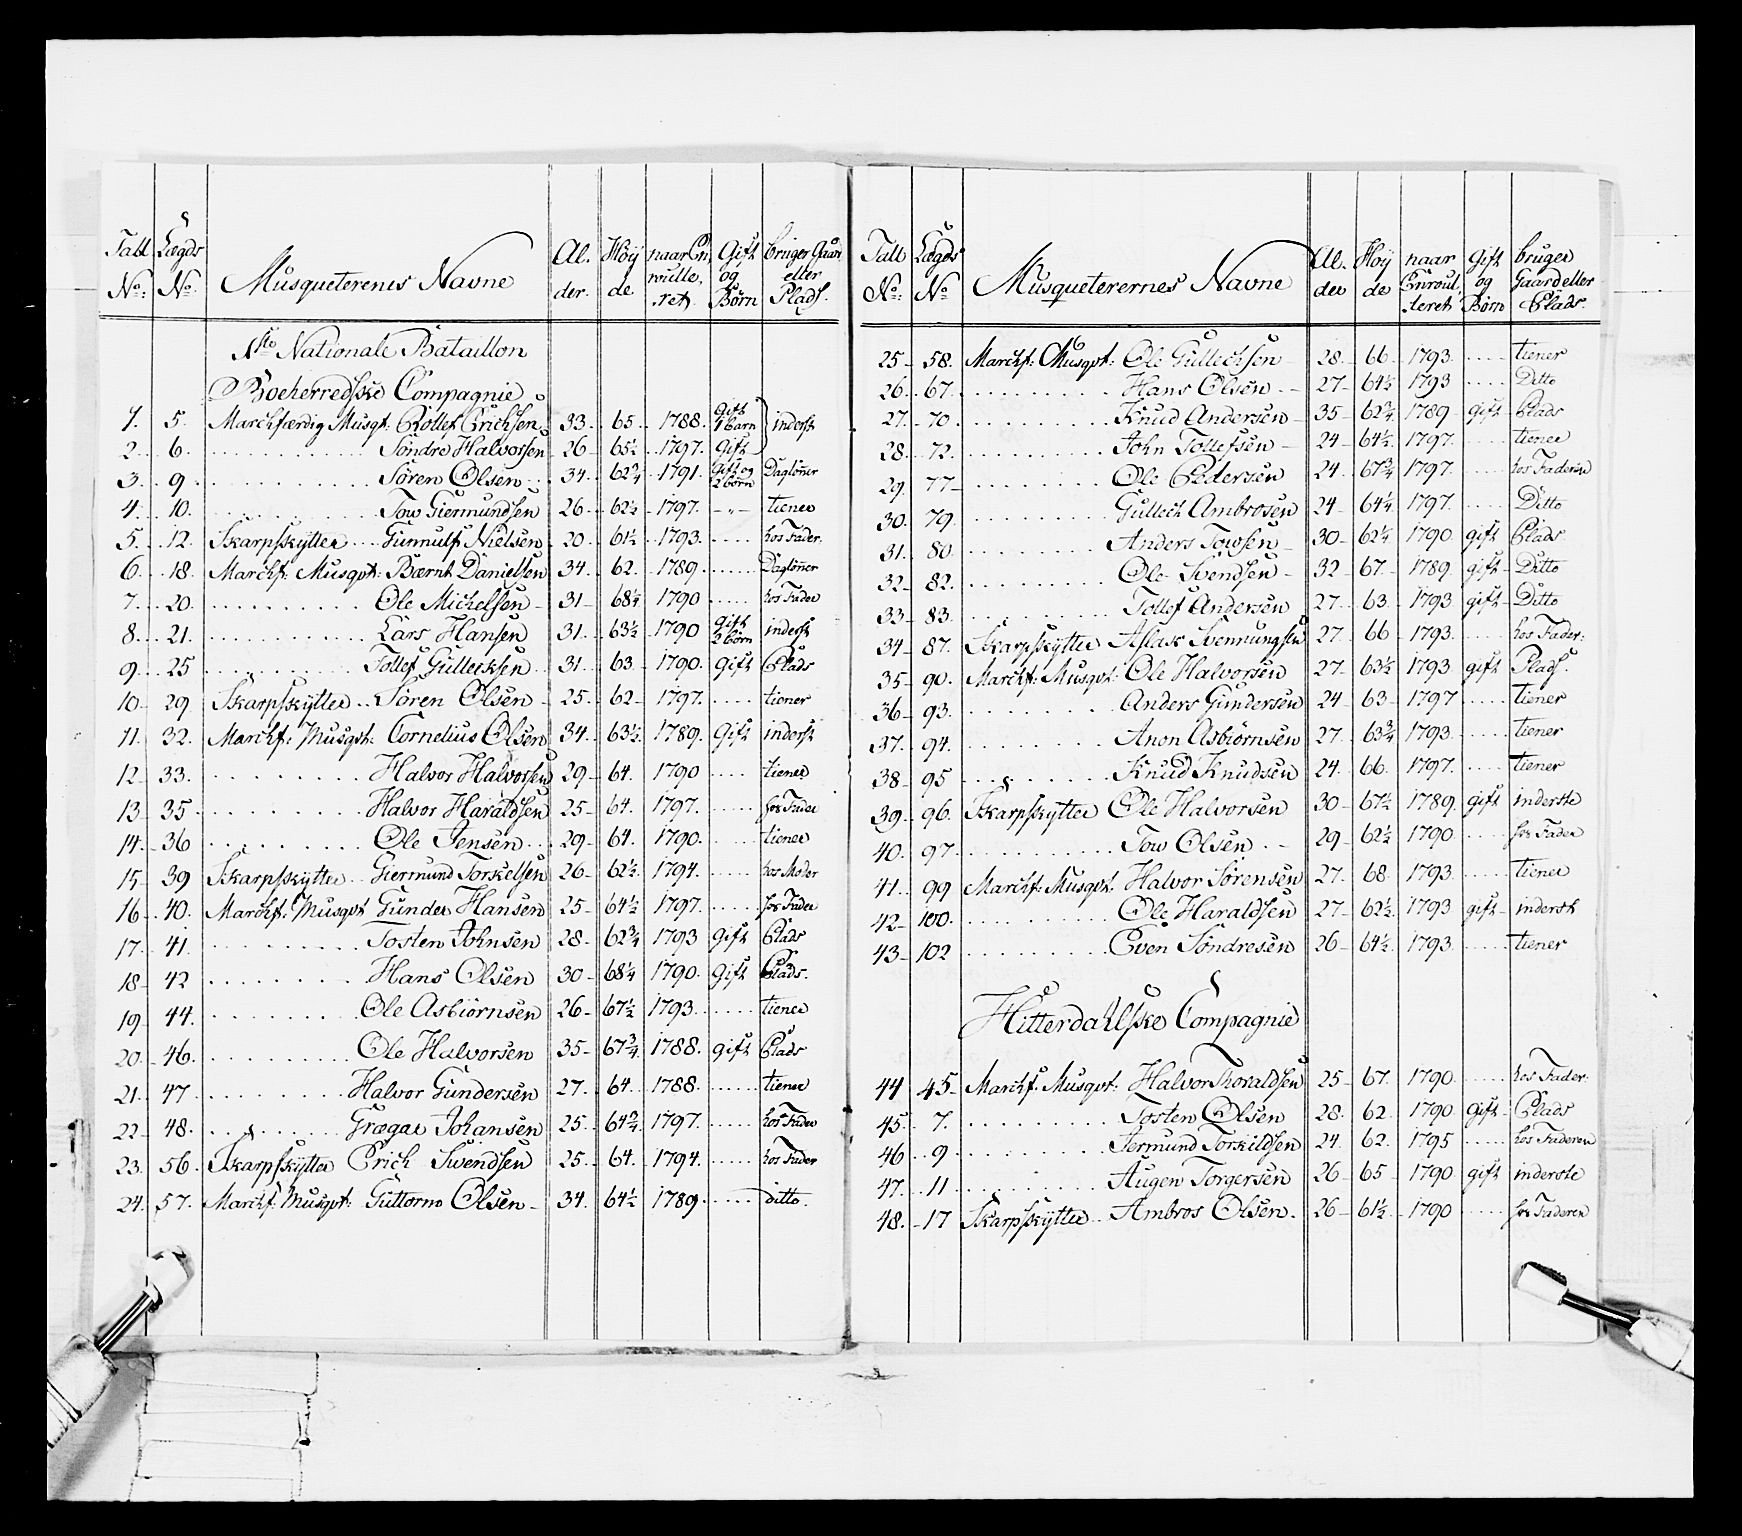 Tall Lægds Musqueterenes Navne Al. Höÿ naar En gift bruger Gaard
No: No. der. de roulle, og eller
ret. Börn Plads.
1ste Nationale Bataillon
Boeherredske Compagnie
1. 5. Marchfærdig Musqt: Rollef Erichsen 33. 65 1788. gift 1 barn inderst
2 6. Söndre Halvorsen 26 65½ 1797. gift
3. 9 Sören Olsen 34. 62¾ 1791. gift og 2 börn Daglönner
4. 10. Tow Giermundsen 26 62½ 1797. -"- tiener
5. 12. Skarpskytter Gunnulf Nielsen 20. 61½ 1793. hos Fader.
6. 18. Marchf: Musqt: Bærnt Danielsen 34. 62. 1789. Daglönner
7. 20. Ole Michelsen 31 68¼ 1790 hos Fader
8. 21. Lars Hansen 31. 63½ 1790 gift 2 börn inderst
9. 25 Tollef Gulleiksen 31. 63. 1790. gift Plads
10 29 Skarpskytter Sören Olsen 25. 62 1797. tiener
11. 32. Marchf: Musqt: Cornelius Olsen 34. 63½ 1789. gift inderst
12 33. Halvor Halvorsen 29 64. 1790 tiener
13 35 Halvor Haraldsen 25 64. 1797. hos Fader
14. 36 Ole Jensen 29 64. 1790. tiener
15 39 Skarpskytter Giermund Torkelsen 26 62½ 1794. hos Moder
16 40. Marchf: Musqt Gunder Hansen 25 64½ 1797. hos Fader
17. 41. Tosten Johnsen 28 62¾ 1793 gift Plads
18 42 Hans Olsen 30 68¼ 1790. gift Plads.
19 44. Ole Asbiörnsen 26 67½ 1793. tiener
20. 46. Ole Halvorsen 35 67¾ 1788. gift Plads
21. 47 Halvor Gundersen 27. 64. 1788. tiener
22 48. Grægar Johansen 25. 64¾ 1797. hos Fader
23. 56 Skarpskytter Erich Swendsen 25. 64. 1794. hos Fader
24. 57. Marchf: Musqt: Guttorm Olsen 34. 64½ 1789. ditto.
Tall Lægds Musqueterernes Navne Al. Höy naar gift bruger
No: No der de Enroul, og Gaard eller
leret Börn Plads.
25 58. Marchf: Musqt: Ole Gullechsen 28. 66 1793. tiener
26. 67. Hans Olsen 27 64½ 1793 Ditto
27. 70. Knud Andersen 35 62¾ 1789 gift Plads
28. 72. John Tollefsen 24 64½ 1797. tiener
29. 77 Ole Pedersen 24. 67¾ 1797. hos Faderen
30. 79. Gullech Ambrosen 24 64¼ 1797. Ditto
31. 80. Anders Towsen 30 62¼ 1790. gift Plads
32 82. Ole Svendsen 32 67. 1789. gift Ditto
33 83. Tollef Andersen 27. 63. 1793 gift Ditto
34 87. Skarpskytter Aslack Svennungsen 27. 66 1793. hos Fader:
35 90. Marchf: Musqt: Ole Halvorsen 27. 63½ 1793 gift Plads.
36 93. Anders Gundersen 24 63 1797 tiener
37. 94. Anon Asbiörnsen 27. 63¾ 1793. tiener
38 95 Knud Knudsen 24. 66. 1797. tiener
39. 96. Skarpskytter Ole Halvorsen 30 67½ 1789. gift inderste
40. 97. Tow Olsen 29 62½ 1790. hos Fader
41. 99 Marchf: Musqt. Halvor Sörensen 27. 68. 1793. tiener
42 100. Ole Haraldsen 27 62½ 1793 gift inderst
43 102 Even Söndresen 26 64½ 1793. tiener
Hitterdahlske Compagnie
44 45 Marchf: Musqt: Halvor Thoraldsen 25 67. 1790. hos Fader:
45. 7. Tosten Olsen 28. 62. 1790 gift Plads
46 9 Jermund Torkildsen 24. 62. 1795 hos Faderen
47. 11 Augen Torgersen 26 65 1790 gift inderste
48. 17 Skarpskytter Ambros Olsen. 26 61½ 1790 hos Faderen